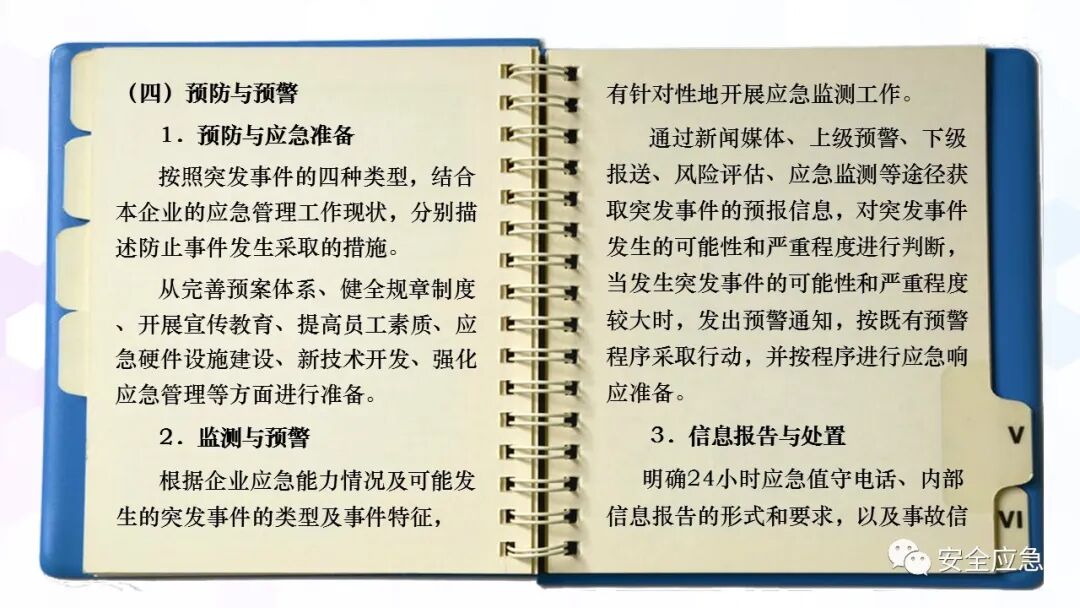 （四）预防与预警
1．预防与应急准备
按照突发事件的四种类型，结合
本企业的应急管理工作现状，分别描
述防止事件发生采取的措施。
从完善预案体系、健全规章制度
、开展宣传教育、提高员工素质、应
急硬件设施建设、新技术开发、强化
应急管理等方面进行准备。
2．监测与预警
根据企业应急能力情况及可能发
生的突发事件的类型及事件特征，
有针对性地开展应急监测工作。
通过新闻媒体、上级预警、下级
报送、风险评估、应急监测等途径获
取突发事件的预报信息，对突发事件
发生的可能性和严重程度进行判断，
当发生突发事件的可能性和严重程度
较大时，发出预警通知，按既有预警
程序采取行动，并按程序进行应急响
应准备。
3．信息报告与处置
明确24小时应急值守电话、内部
信息报告的形式和要求，以及事故信
V
VI
安全应急